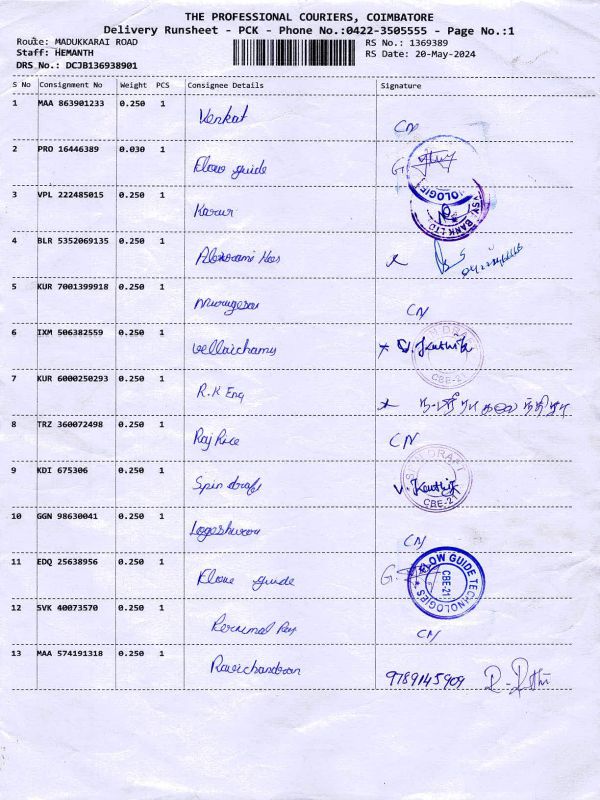 THE PROFESSIONAL COURIERS, COIMBATORE
Delivery Runsheet - PCK - Phone No.:0422-3505555 - Page No.:1
Route: MADUKKARAI ROAD
Staff: HEMANTH
DRS No.: DCJB136938901
RS No.: 1369389
RS Date: 20-May-2024
S No Consignment No Weight PCS Consignee Details Signature
1 MAA 863901233 0.250 1 Venkat CN
2 PRO 16446389 0.030 1 Flow guide
3 VPL 222485015 0.250 1 Karur
BANK LTD
4 BLR 5352069135 0.250 1
5 KUR 7001399918 0.250 1 Murugesan CN
6 IXM 506382559 0.250 1 Vellaichamy V. Karthik
DRAFT
CBE-21
7 KUR 6000250293 0.250 1 R.K Eng
8 TRZ 360072498 0.250 1 Raj Rice CN
9 KDI 675306 0.250 1 Spin draft V. Karthik
DRAFT
CBE-21
10 GGN 98630041 0.250 1 Logeshwaran CN
11 EDQ 25638956 0.250 1 Flow guide
FLOW GUIDE TECHNOLOGIES
CBE-21
12 SVK 40073570 0.250 1 Perumal CN
13 MAA 574191318 0.250 1 Ravichandran 9789145909